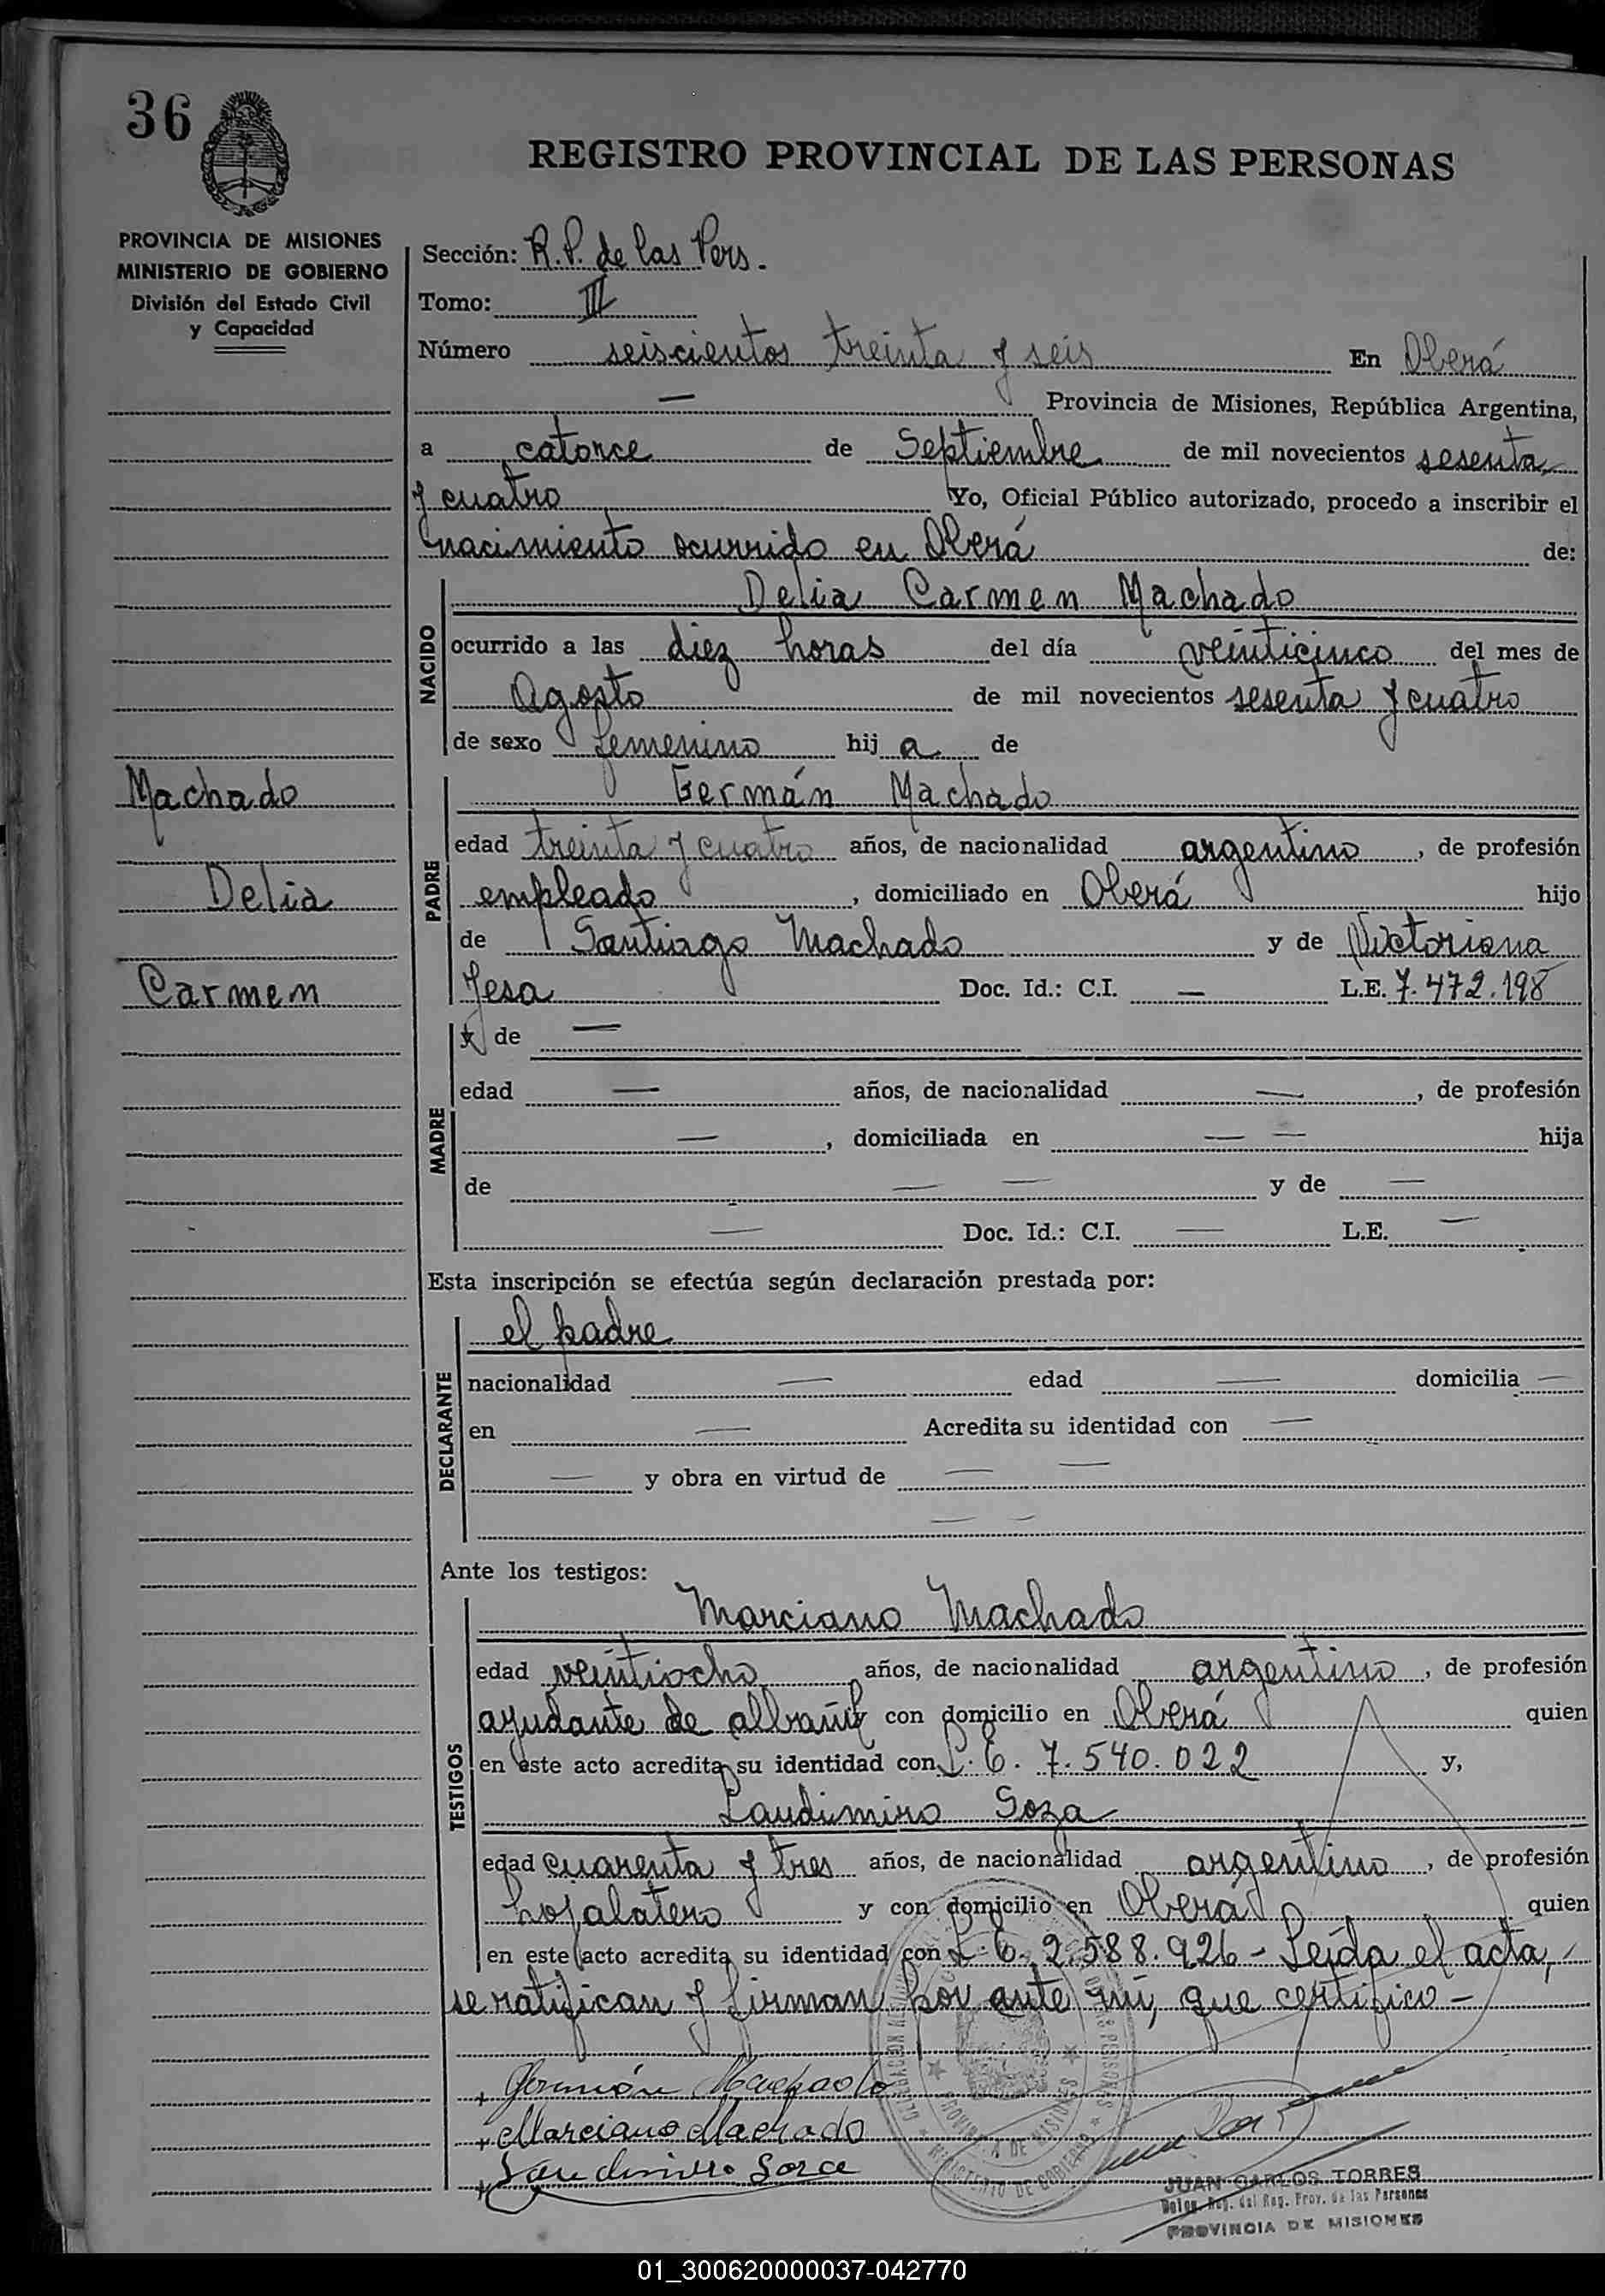 36
REGISTRO PROVINCIAL DE LAS PERSONAS
PROVINCIA DE MISIONES
MINISTERIO DE GOBIERNO
División del Estado Civil
y Capacidad
Sección: R.P. de las Pers.
Tomo: III
Número seiscientos treinta y seis En Oberá
— Provincia de Misiones, República Argentina,
a catorce de Septiembre de mil novecientos sesenta
y cuatro Yo, Oficial Público autorizado, procedo a inscribir el
nacimiento ocurrido en Oberá de:
NACIDO
Delia Carmen Machado
ocurrido a las diez horas del día veinticinco del mes de
Agosto de mil novecientos sesenta y cuatro
de sexo femenino hij a de
Machado
Delia
Carmen
PADRE
Germán Machado
edad treinta y cuatro años, de nacionalidad argentino, de profesión
empleado, domiciliado en Oberá hijo
de Santiago Machado y de Victoriana
Jesa Doc. Id.: C.I. — L.E. 7.472.198
MADRE
y de —
edad — años, de nacionalidad —, de profesión
—, domiciliada en — — hija
de — — y de —
— Doc. Id.: C.I. — L.E. —
Esta inscripción se efectúa según declaración prestada por:
DECLARANTE
el padre
nacionalidad — edad — domicilia —
en — Acredita su identidad con —
— y obra en virtud de — —
— —
Ante los testigos:
TESTIGOS
Marciano Machado
edad veintiocho años, de nacionalidad argentino, de profesión
ayudante de albañil con domicilio en Oberá quien
en este acto acredita su identidad con L.E. 7.540.022 y,
Laudimiro Soza
edad cuarenta y tres años, de nacionalidad argentino, de profesión
hojalatero y con domicilio en Oberá quien
en este acto acredita su identidad con L.E. 2.588.926 - Leída el acta,
se ratifican y firman por ante mí, que certifico -
Germán Machado
Marciano Machado
Laudimiro Soza
PROVINCIA DE MISIONES
MINISTERIO DE GOBIERNO
JUAN CARLOS TORRES
Deleg. Reg. del Reg. Prov. de las Personas
PROVINCIA DE MISIONES
01_300620000037-042770